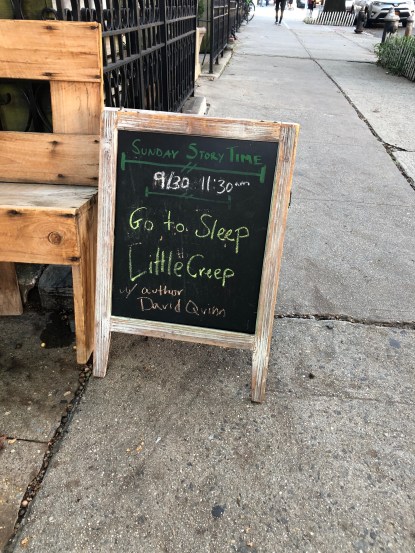 Sunday Story Time
9/30 11:30am
Go to Sleep
Little Creep
w/ author
David Quinn